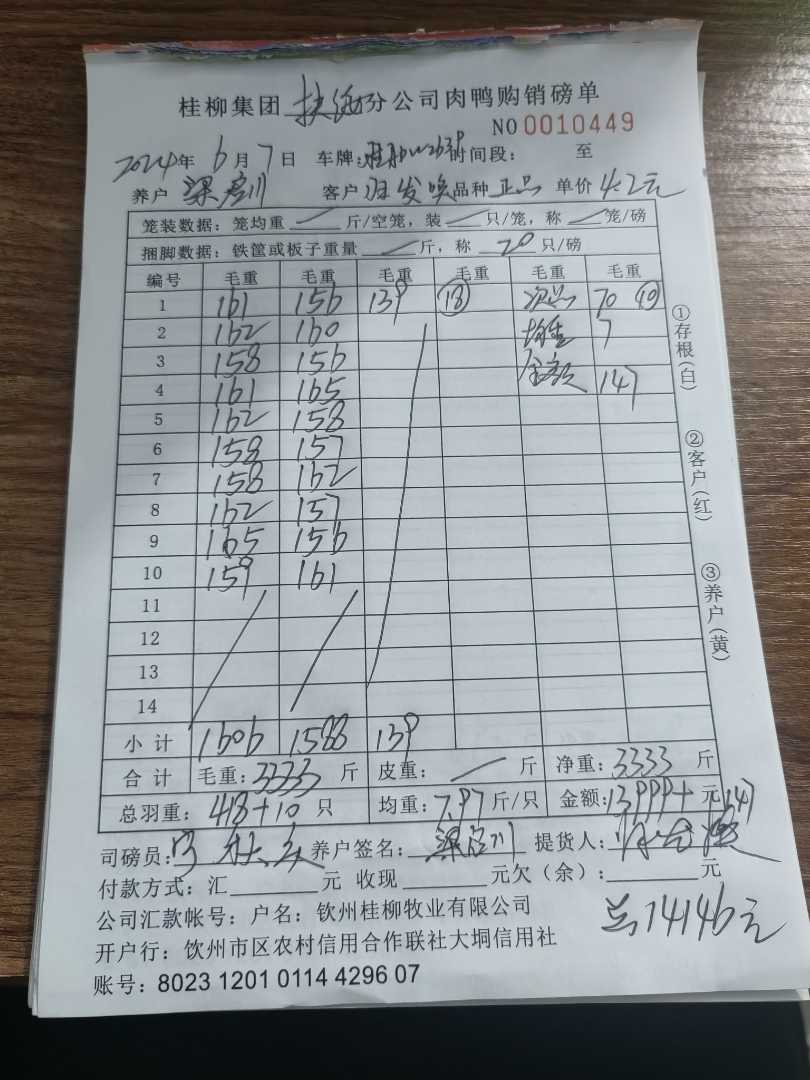 桂柳集团 扶绥分公司肉鸭购销磅单
NO 0010449
2024年 6月 7日 车牌: 时间段: 至
养户 梁 客户 发 品种 正品 单价 4.2元
笼装数据: 笼均重 / 斤/空笼, 装 / 只/笼, 称 / 笼/磅
捆脚数据: 铁筐或板子重量 / 斤, 称 20 只/磅
编号 毛重 毛重 毛重 毛重 毛重 毛重
1 161 156 139 ⑱ 次品 70 ⑩
2 162 160 均重 7
3 158 156 金额 147
4 161 165
5 162 158
6 158 157
7 158 162
8 162 157
9 165 156
10 159 161
11
12
13
14
小计 1606 1588 139
合计 毛重: 3333 斤 皮重: / 斤 净重: 3333 斤
总羽重: 418+10 只 均重: 7.97 斤/只 金额: 13999+ 元 147
司磅员: 养户签名: 梁 提货人:
付款方式: 汇 元 收现 元欠(余): 元
总14146元
公司汇款帐号: 户名: 钦州桂柳牧业有限公司
开户行: 钦州市区农村信用合作联社大垌信用社
账号: 8023 1201 0114 4296 07
①存根(白)
②客户(红)
③养户(黄)